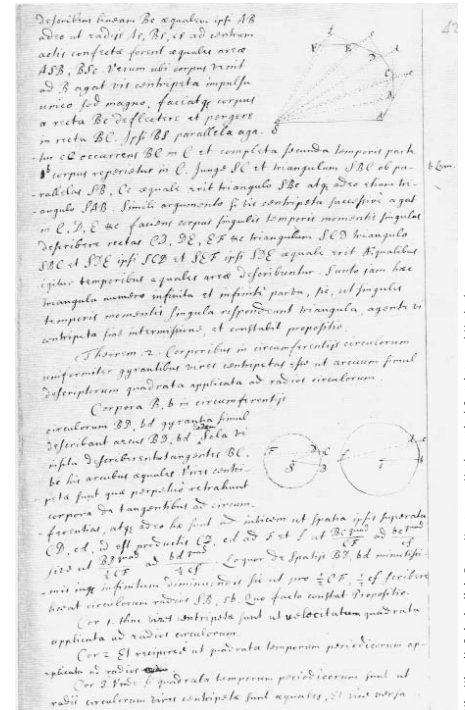 describens lineam Bc æqualem ipsi AB
adeo ut radijs AS, BS, cS ad centrum
actis confectæ forent æquales areæ
ASB, BSc. Verum ubi corpus venit
ad B agat vis centripeta impulsu
unico sed magno, faciatque corpus
a recta Bc deflectere et pergere
in recta BC. Ipsi BS parallela aga-
tur cC occurrens BC in C et completa secunda temporis parte
corpus reperietur in C. Junge SC et triangulum SBC ob pa-
rallelas SB, Cc æquale erit triangulo SBc atque adeo etiam tri-
angulo SAB. Simili argumento si vis centripeta successive agat
in C, D, E &c faciens corpus singulis temporis momentis singulas
describere rectas CD, DE, EF &c triangulum SCD triangulo
SBC et SDE ipsi SCD et SEF ipsi SDE æquale erit. Æqualibus
igitur temporibus æquales areæ describuntur. Sunto jam hæc
triangula numero infinita et infinite parva, sic, ut singulis
temporis momentis singula respondeant triangula, agente vi
centripeta sine intermissione, et constabit propositio.
Theorem. 2. Corporibus in circumferentijs circulorum
uniformiter gyrantibus vires centripetas esse ut arcuum simul
descriptorum quadrata applicata ad radios circulorum.
Corpora B, b in circumferentijs
circulorum BD, bd gyrantia simul
describant arcus BD, bd. Sola vi
insita describerent tangentes BC,
bc his arcubus æquales. Vires centri-
petæ sunt quæ perpetuo retrahunt
corpora de tangentibus ad circum-
ferentias, atque adeo hæ sunt ad invicem ut spatia ipsis superata
CD, cd, id est productis CD, cd ad F et f ut BC quad / CF ad bc quad / cf
sive ut BD quad / ½CF ad bd quad / ½cf. Loquor de spatijs BD, bd minutissi-
mis inque infinitum diminuendis sic ut pro ½CF, ½cf scribere
liceat circulorum radios SB, sb. Quo facto constat Propositio.
Cor 1. Hinc vires centripetæ sunt ut velocitatum quadrata
applicata ad radios circulorum.
Cor 2. Et reciproce ut quadrata temporum periodicorum ap-
plicata ad radios
Cor 3. Unde si quadrata temporum periodicorum sunt ut
radij circulorum vires centripetæ sunt æquales, Et vice versa